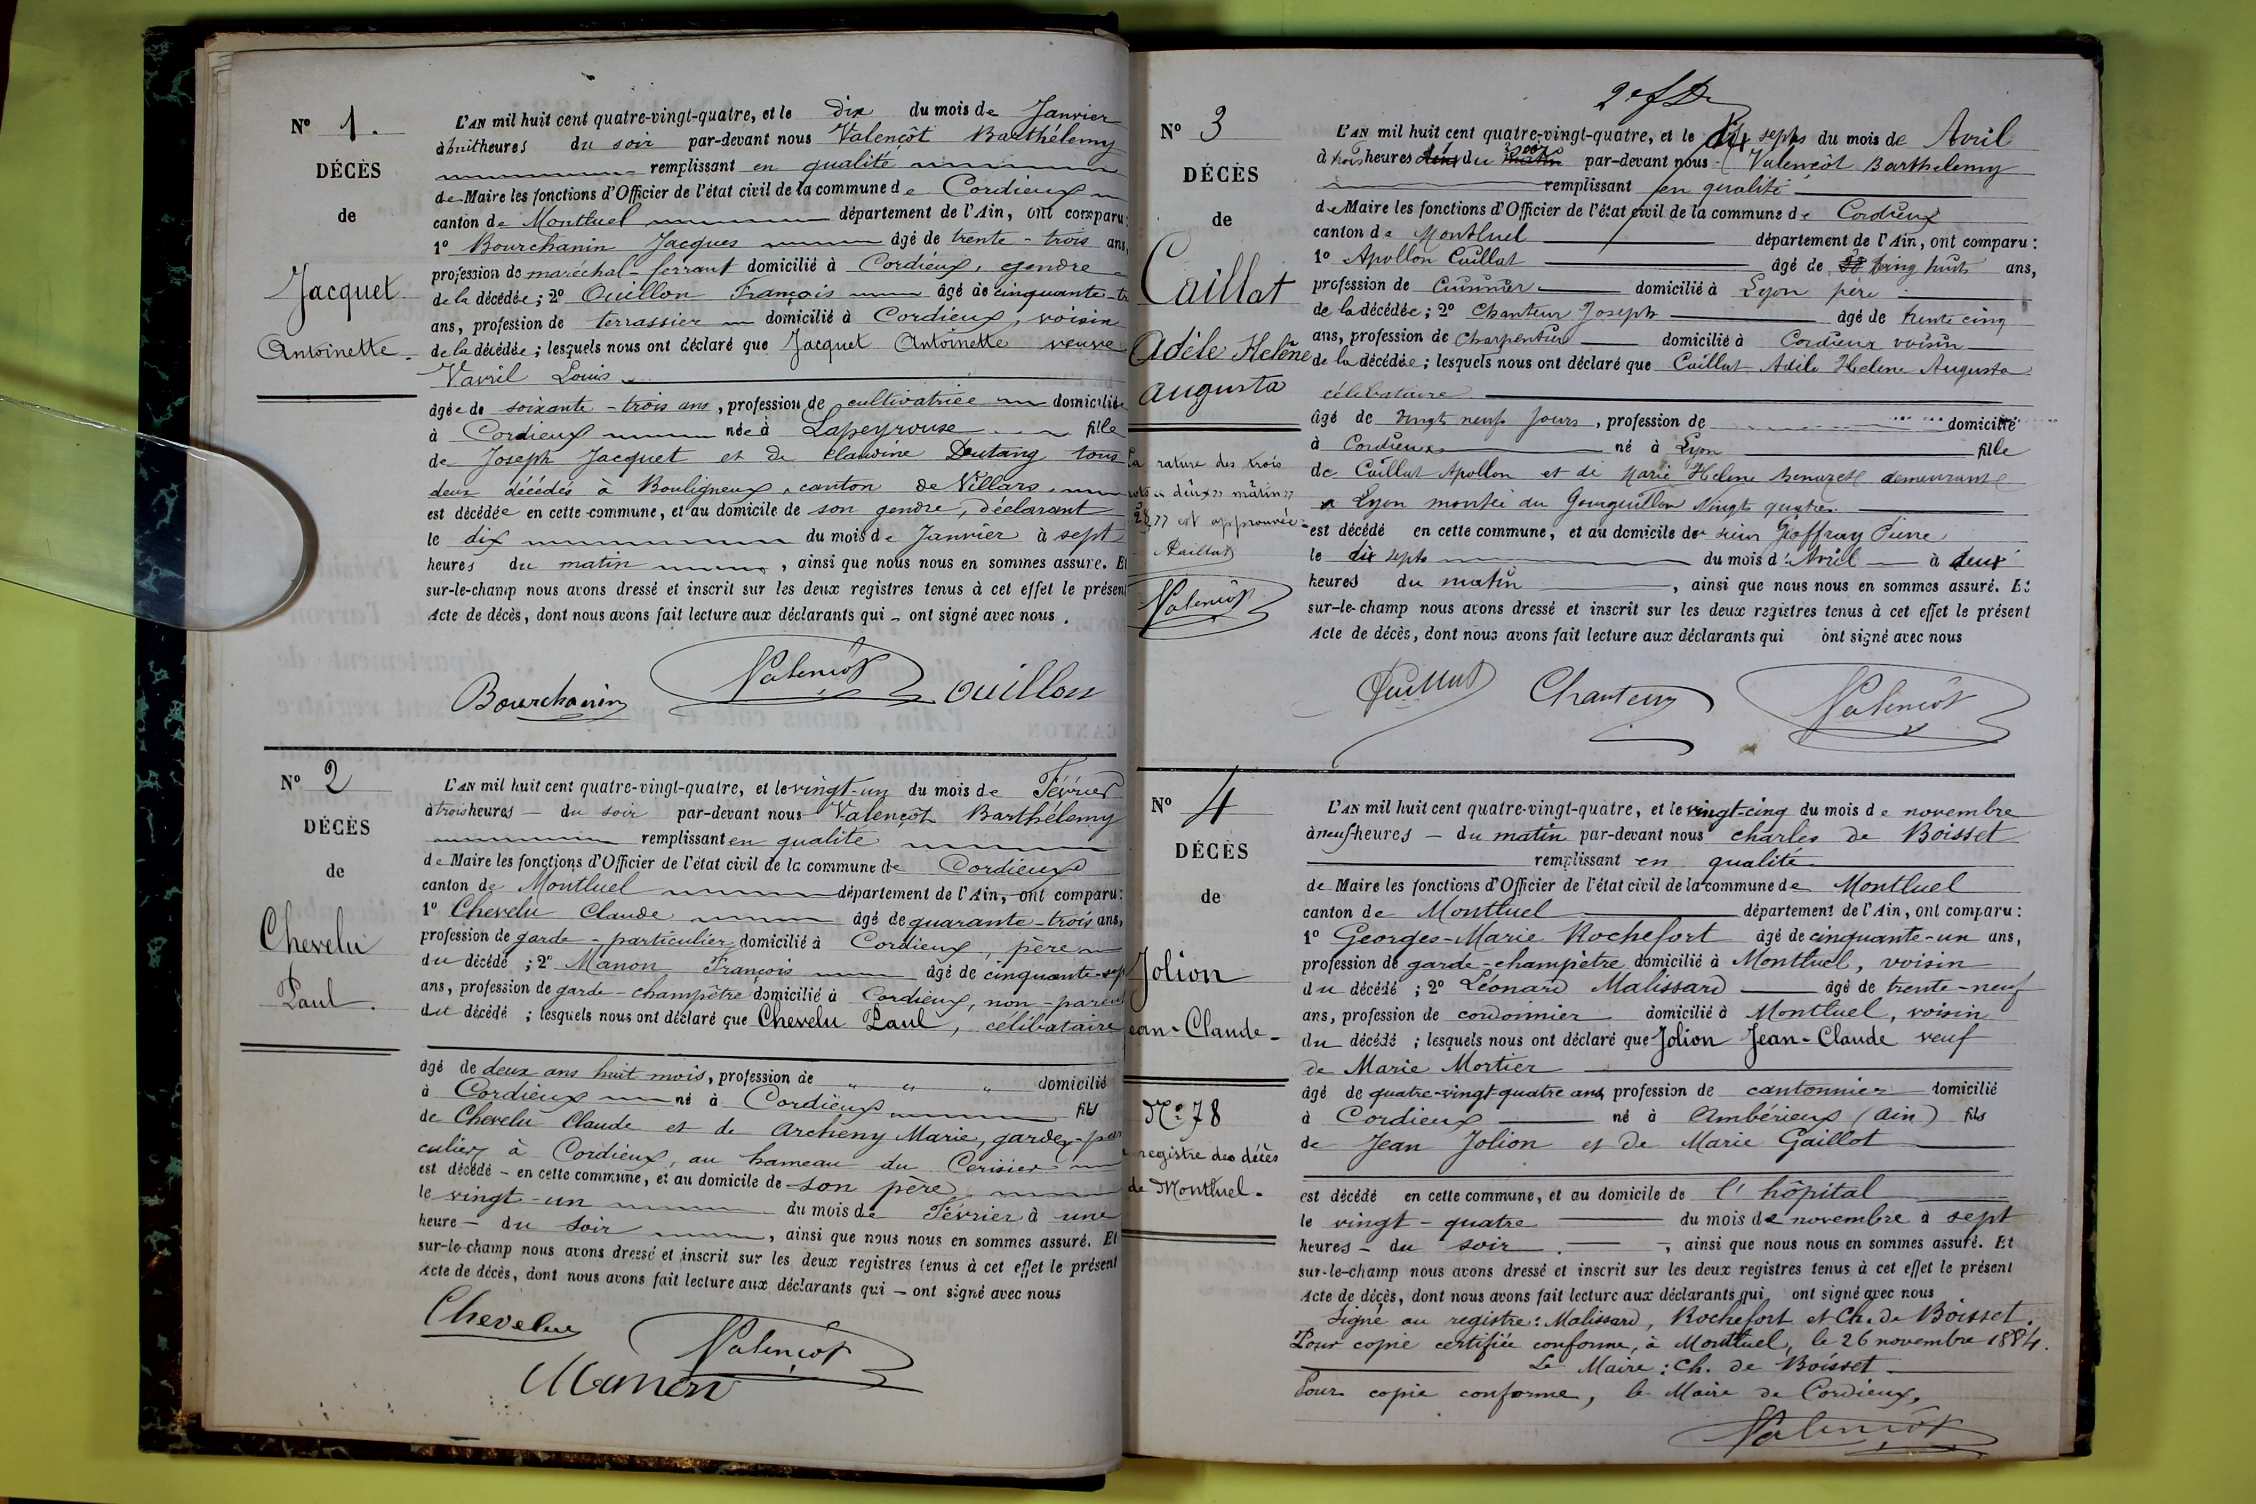 N° 1.
DÉCÈS
de
Jacquet
Antoinette.
L'AN mil huit cent quatre-vingt-quatre, et le dix du mois de Janvier
à huit heures du soir par-devant nous Valençôt Barthélemy
remplissant en qualité
de Maire les fonctions d'Officier de l'état civil de la commune de Cordieux
canton de Montluel département de l'Ain, ont comparu:
1° Bourchanin Jacques âgé de trente-trois ans,
profession de maréchal-ferrant domicilié à Cordieux, gendre
de la décédée; 2° Ouillon François âgé de cinquante-tr
ans, profession de terrassier domicilié à Cordieux, voisin
de la décédée; lesquels nous ont déclaré que Jacquet Antoinette veuve
Vavril Louis
âgée de soixante-trois ans, profession de cultivatrice domiciliée
à Cordieux née à Lapeyrouse fille
de Joseph Jacquet et de Claudine Dutang tous
deux décédés à Bouligneux, canton de Villars,
est décédée en cette commune, et au domicile de son gendre, déclarant
le dix du mois de Janvier à sept
heures du matin, ainsi que nous nous en sommes assuré. Et
sur-le-champ nous avons dressé et inscrit sur les deux registres tenus à cet effet le présent
Acte de décès, dont nous avons fait lecture aux déclarants qui - ont signé avec nous.
Bourchanin Valençôt Ouillon
N° 2
DÉCÈS
de
Chevelu
Paul.
L'AN mil huit cent quatre-vingt-quatre, et le vingt-un du mois de Février
à trois heures - du soir par-devant nous Valençôt Barthélemy
remplissant en qualité
de Maire les fonctions d'Officier de l'état civil de la commune de Cordieux
canton de Montluel département de l'Ain, ont comparu:
1° Chevelu Claude âgé de quarante-trois ans,
profession de garde-particulier domicilié à Cordieux, père
du décédé; 2° Manon François âgé de cinquante-sep
ans, profession de garde-champêtre domicilié à Cordieux, non-parent
du décédé; lesquels nous ont déclaré que Chevelu Paul, célibataire
âgé de deux ans huit mois, profession de " " " domicilié
à Cordieux né à Cordieux fils
de Chevelu Claude et de Archeny Marie, gardes-par
culier à Cordieux, au hameau du Cerisier
est décédé - en cette commune, et au domicile de son père
le vingt-un du mois de Février à une
heure - du soir, ainsi que nous nous en sommes assuré. Et
sur-le-champ nous avons dressé et inscrit sur les deux registres tenus à cet effet le présent
Acte de décès, dont nous avons fait lecture aux déclarants qui - ont signé avec nous
Chevelu Valençôt
Manon
2e f
N° 3
DÉCÈS
de
Caillat
Adèle Helène
Augusta
La rature des trois
mots « deux » matin »
28 » est approuvée
Caillat
Valençôt
L'AN mil huit cent quatre-vingt-quatre, et le dix sept du mois de Avril
à trois heures du soir par-devant nous Valençôt Barthelemy
remplissant en qualité
de Maire les fonctions d'Officier de l'état civil de la commune de Cordieux
canton de Montluel département de l'Ain, ont comparu:
1° Apollon Caillat âgé de 28 ving huit ans,
profession de domicilié à Lyon père
de la décédée; 2° Chanteur Joseph âgé de trente cinq
ans, profession de Charpentier domicilié à Cordieux voisin
de la décédée; lesquels nous ont déclaré que Caillat Adèle Helene Augusta
célibataire
âgé de vingt neuf jours, profession de domicilié
à Cordieux né à Lyon fille
de Caillat Apollon et de Marie Helene demeurant
a Lyon montée du Gourguillon vingt quatre
est décédé en cette commune, et au domicile de sieur Joffray Pierre
le dix sept du mois d'Avril à deux
heures du matin, ainsi que nous nous en sommes assuré. Et
sur-le-champ nous avons dressé et inscrit sur les deux registres tenus à cet effet le présent
Acte de décès, dont nous avons fait lecture aux déclarants qui ont signé avec nous
Caillat Chanteur Valençôt
N° 4
DÉCÈS
de
Jolion
Jean-Claude.
N° 78
registre des décès
de Montluel.
L'AN mil huit cent quatre-vingt-quatre, et le vingt-cinq du mois de novembre
à neuf heures - du matin par-devant nous Charles de Boisset
remplissant en qualité
de Maire les fonctions d'Officier de l'état civil de la commune de Montluel
canton de Montluel département de l'Ain, ont comparu:
1° Georges-Marie Rochefort âgé de cinquante-un ans,
profession de garde-champêtre domicilié à Montluel, voisin
du décédé; 2° Léonard Malissard âgé de trente-neuf
ans, profession de cordonnier domicilié à Montluel, voisin
du décédé; lesquels nous ont déclaré que Jolion Jean-Claude veuf
de Marie Mortier
âgé de quatre-vingt-quatre ans, profession de cantonnier domicilié
à Cordieux né à Ambérieux (Ain) fils
de Jean Jolion et de Marie Gaillot
est décédé en cette commune, et au domicile de l'hôpital
le vingt-quatre du mois de novembre à sept
heures - du soir, ainsi que nous nous en sommes assuré. Et
sur-le-champ nous avons dressé et inscrit sur les deux registres tenus à cet effet le présent
Acte de décès, dont nous avons fait lecture aux déclarants qui ont signé avec nous
Signé au registre: Malissard, Rochefort et Ch. de Boisset.
Pour copie certifiée conforme, à Montluel, le 26 novembre 1884.
Le Maire: Ch. de Boisset
Pour copie conforme, le Maire de Cordieux,
Valençôt